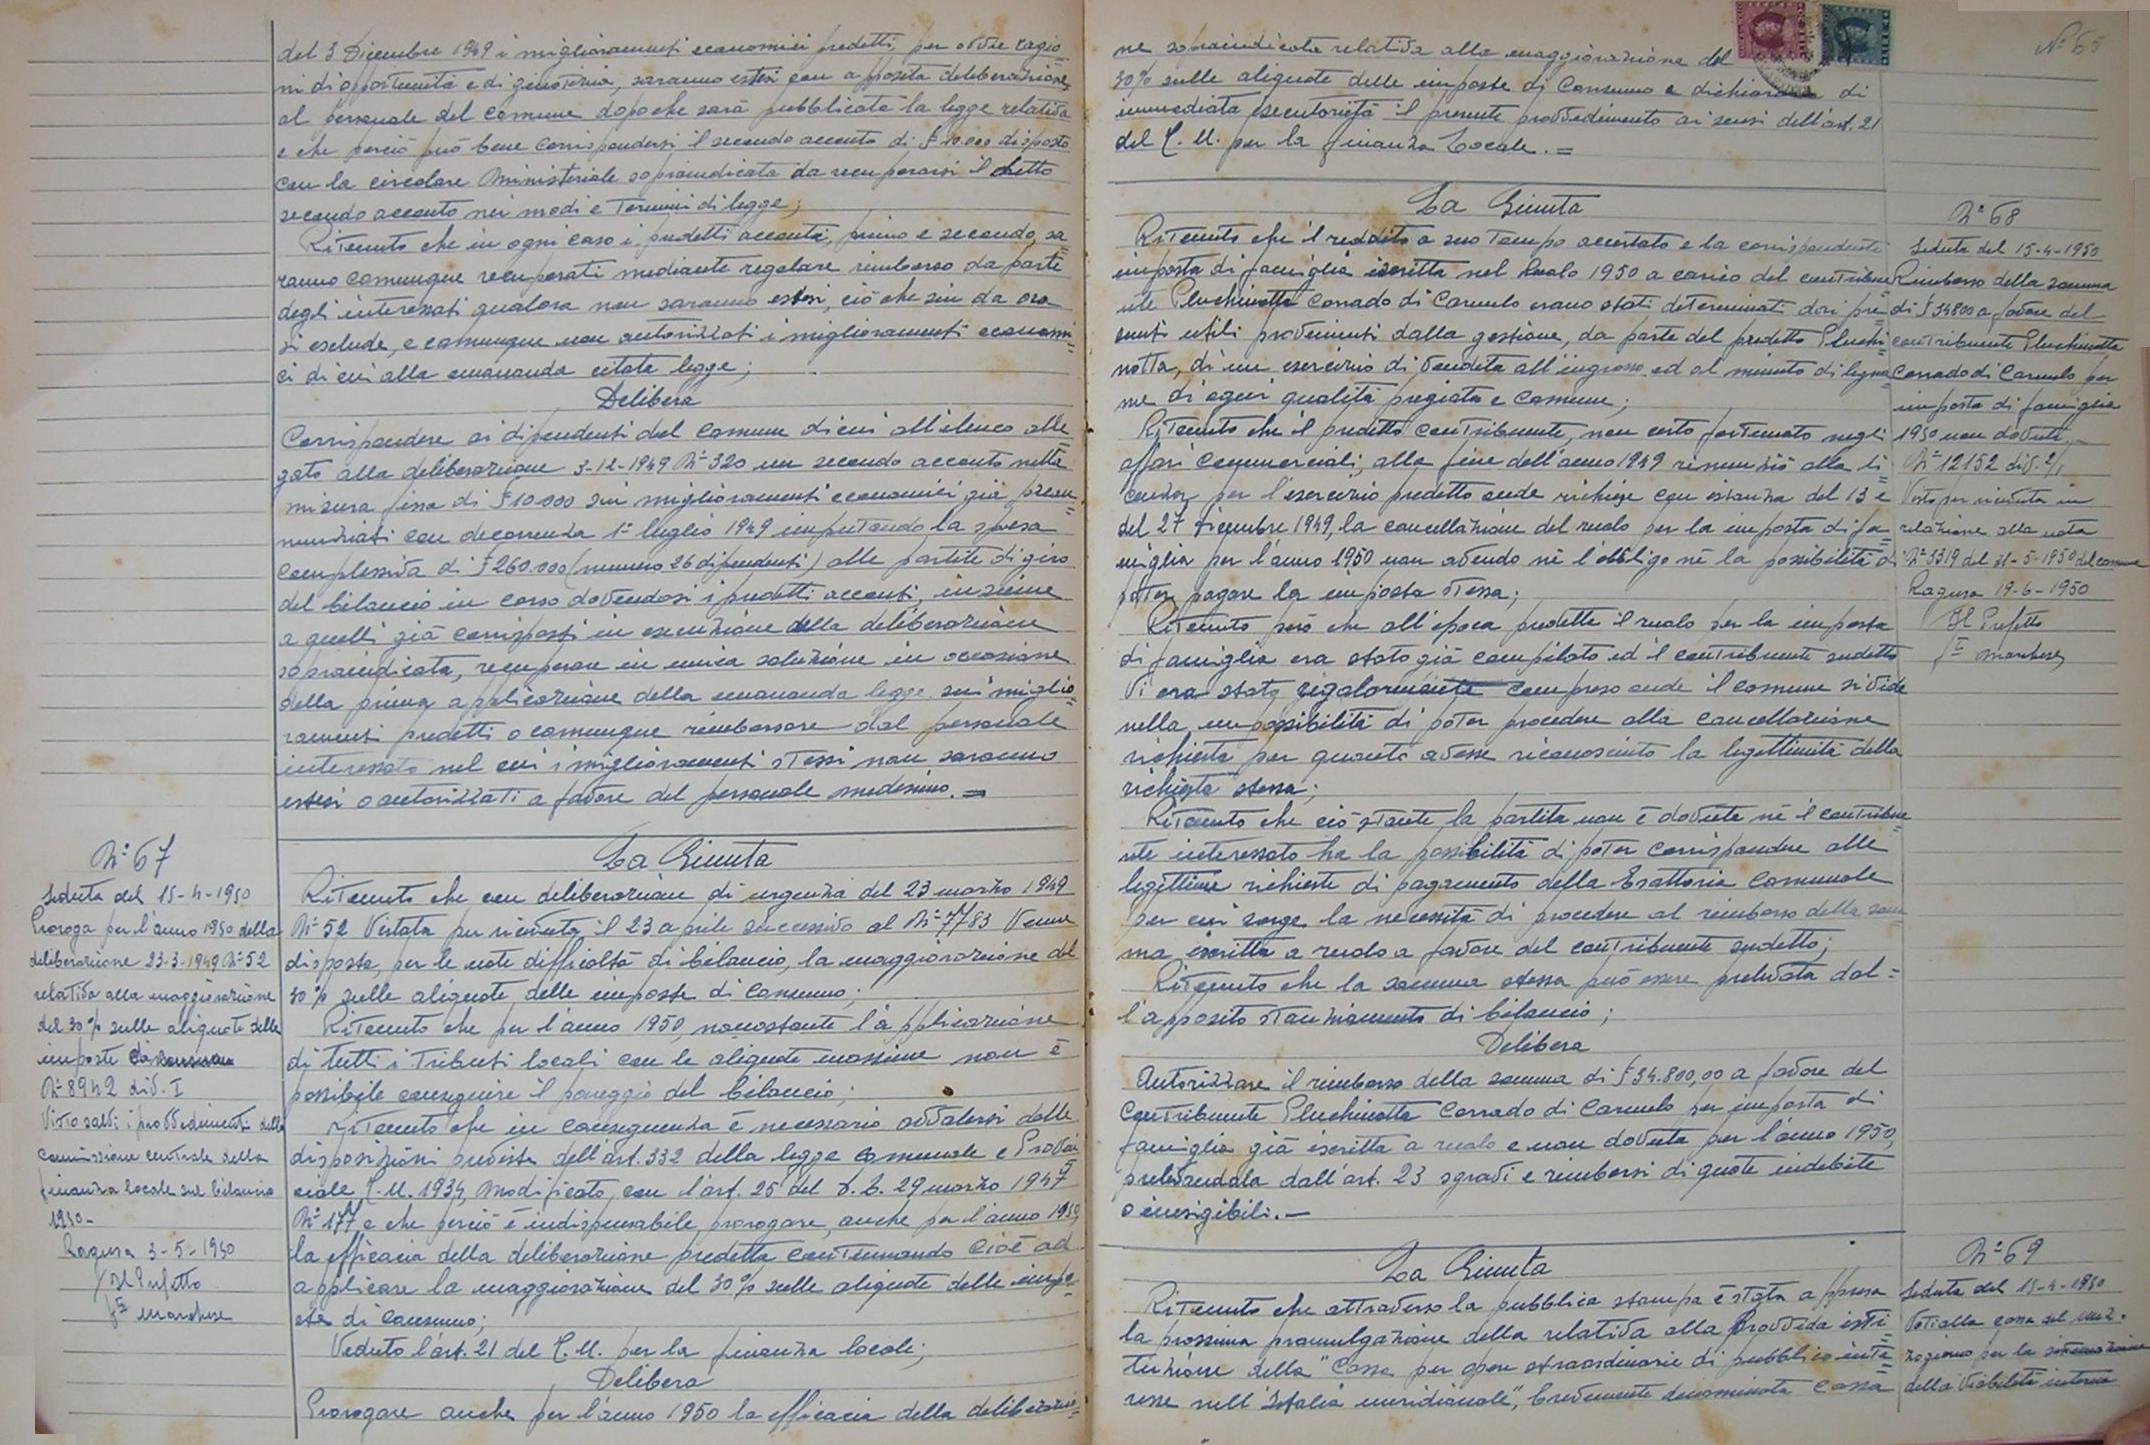 del 3 Dicembre 1949 i miglioramenti economici predetti, per ovvie ragio=
ni di opportunità e di giustizia, saranno estesi con apposita deliberazione,
al personale del Comune dopo che sarà pubblicata la legge relativa
e che perciò può bene corrispondersi il secondo acconto di £ 10.000 disposto
con la circolare Ministeriale sopraindicata da recuperarsi il detto
secondo acconto nei modi e termini di legge;
Ritenuto che in ogni caso i predetti acconti, primo e secondo, sa=
ranno comunque recuperati mediante regolare rimborso da parte
degli interessati qualora non saranno estesi, ciò che sin da ora
si esclude, e comunque non autorizzati i miglioramenti economi=
ci di cui alla emananda citata legge;
Delibera
Corrispondere ai dipendenti del Comune di cui all'elenco alle=
gato alla deliberazione 3-12-1949 N° 320 un secondo acconto nella
misura fissa di £ 10.000 sui miglioramenti economici già prean=
nunziati con decorrenza 1° luglio 1949 imputando la spesa
complessiva di £ 260.000 (numero 26 dipendenti) alle partite di giro
del bilancio in corso dovendosi i predetti acconti, insieme
a quelli già corrisposti in esecuzione della deliberazione
sopraindicata, recuperare in unica soluzione in occasione
della prima applicazione della emananda legge sui miglio=
ramenti predetti o comunque rimborsare dal personale
interessato nel cui i miglioramenti stessi non saranno
estesi o autorizzati a favore del personale medesimo. =
N° 67
Seduta del 15-4-1950
Proroga per l'anno 1950 della
deliberazione 23-3-1949 N° 52
relativa alla maggiorazione
del 30% sulle aliquote delle
imposte di consumo
N° 8942 div. I
Visto salvi i provvedimenti della
commissione centrale della
finanza locale sul bilancio
1950 -
Ragusa 3-5-1950
Il Prefetto
fto Marchese
La Giunta
Ritenuto che con deliberazione di urgenza del 23 marzo 1949
N° 52 Vistata per ricevuta il 23 aprile successivo al N° 7783 Venne
disposta, per le note difficoltà di bilancio, la maggiorazione del
30% sulle aliquote delle imposte di consumo;
Ritenuto che per l'anno 1950, nonostante l'applicazione
di tutti i tributi locali con le aliquote massime non è
possibile conseguire il pareggio del bilancio;
Ritenuto che in conseguenza è necessario avvalersi delle
disposizioni previste dell'art. 332 della legge comunale e Provin=
ciale T.U. 1934, modificato con l'art. 25 del D.L. 29 marzo 1947
N° 177 e che perciò è indispensabile prorogare, anche per l'anno 1950,
la efficacia della deliberazione predetta continuando cioè ad
applicare la maggiorazione del 30% sulle aliquote delle impo=
ste di consumo;
Veduto l'art. 21 del T.U. per la finanza locale;
Delibera
Prorogare anche per l'anno 1950 la efficacia della deliberazio=
N° 65
ne sopraindicata relativa alla maggiorazione del
30% sulle aliquote delle imposte di consumo e dichiarare di
immediata esecutorietà il presente provvedimento ai sensi dell'art. 21
del T.U. per la finanza Locale. =
La Giunta
Ritenuto che il reddito a suo tempo accertato e la corrispondente
imposta di famiglia iscritta nel Ruolo 1950 a carico del contribue
nte Pluchinotta Corrado di Carmelo erano stati determinati dai pre=
sunti utili provenienti dalla gestione, da parte del predetto Pluchi=
notta, di un esercizio di vendita all'ingrosso ed al minuto di legna
me di ogni qualità pregiata e comune;
Ritenuto che il predetto contribuente, non certo fortunato negli
affari commerciali, alla fine dell'anno 1949 rinunziò alla li=
cenza per l'esercizio predetto onde richiese con istanza del 13 e
del 27 dicembre 1949, la cancellazione del ruolo per la imposta di fa=
miglia per l'anno 1950 non avendo nè l'obbligo nè la possibilità di
poter pagare la imposta stessa;
Ritenuto però che all'epoca predetta il ruolo per la imposta
di famiglia era stato già compilato ed il contribuente sudetto
vi era stato regolarmente compreso onde il Comune si vide
nella impossibilità di poter procedere alla cancellazione
richiesta per quanto avesse riconosciuto la legittimità della
richiesta stessa;
Ritenuto che ciò stante, la partita non è dovuta nè il contribue
nte interessato ha la possibilità di poter corrispondere alle
legittime richieste di pagamento della Esattoria Comunale
per cui sorge la necessità di procedere al rimborso della som
ma iscritta a ruolo a favore del contribuente sudetto;
Ritenuto che la somma stessa può essere prelevata dal=
l'apposito stanziamento di bilancio;
Delibera
Autorizzare il rimborso della somma di £ 34.800,00 a favore del
Contribuente Pluchinotta Corrado di Carmelo per imposta di
famiglia già iscritta a ruolo e non dovuta per l'anno 1950,
prelevandola dall'art. 23 sgravi e rimborsi di quote indebite
o inesigibili. -
N° 68
Seduta del 15-4-1950
Rimborso della somma
di £ 34800 a favore del
contribuente Pluchinotta
Corrado di Carmelo per
imposta di famiglia
1950 non dovuta
N° 12152 div. 2/1
Visto per ricevuta in
relazione alla nota
N° 3319 del 31-5-1950 del comune
Ragusa 19-6-1950
Il Prefetto
fto Marchese
La Giunta
Ritenuto che attraverso la pubblica stampa è stata appresa
la prossima promulgazione della relativa alla provvida isti=
tuzione della "Cassa per opere straordinarie di pubblico inte=
resse nell'Italia meridionale", brevemente denominata Cassa
N° 69
Seduta del 15-4-1950
Voti alla Cassa del mez=
zogiorno per la sistemazione
della viabilità interna